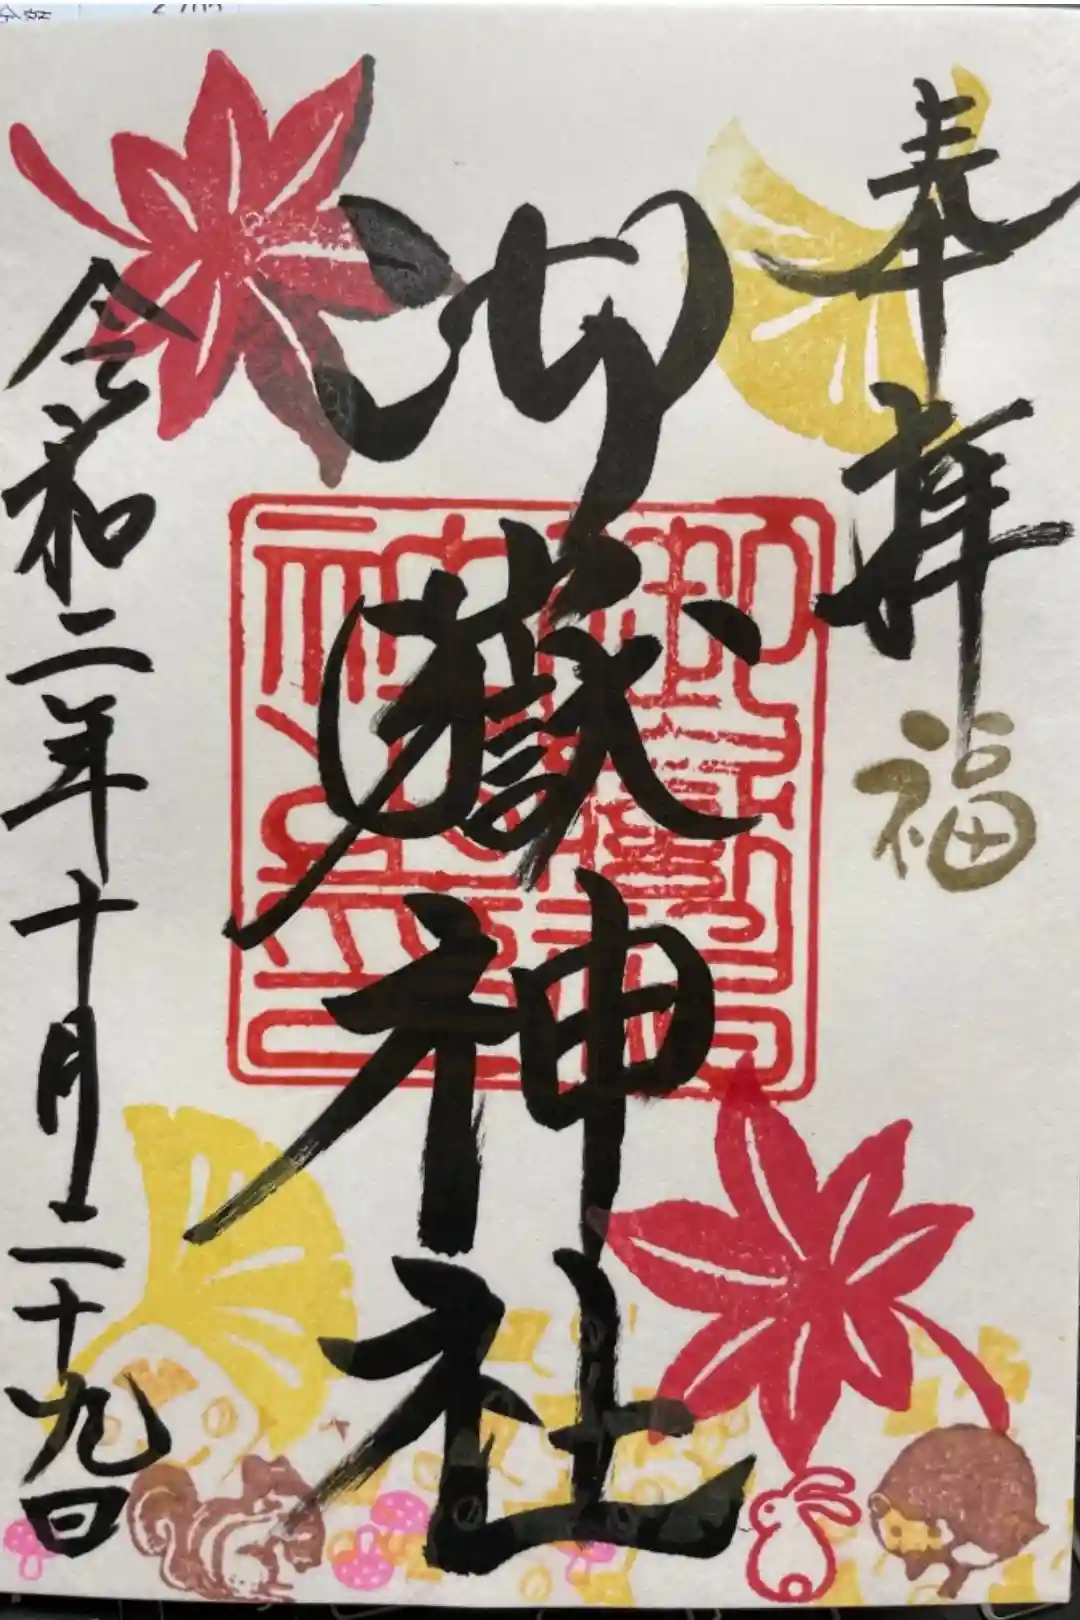 奉拝
福
御嶽神社
令和二年十月二十九日